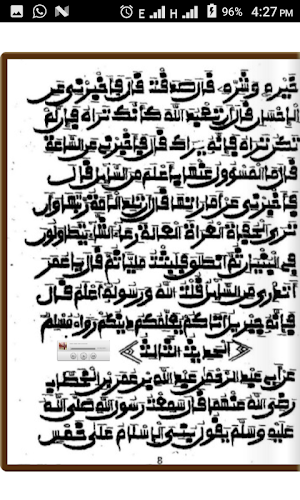 E H 96% 4:27 PM
خيره وشره قال صدقت قال فأخبرني عن
الإحسان قال أن تعبد الله كأنك تراه فإن لم
تكن تراه فإنه يراك قال فأخبرني عن الساعة
قال ما المسؤول عنها بأعلم من السائل قال
فأخبرني عن أماراتها قال أن تلد الأمة ربتها وأن
ترى الحفاة العراة العالة رعاء الشاء يتطاولون
في البنيان ثم انطلق فلبثت مليا ثم قال يا عمر
أتدري من السائل قلت الله ورسوله أعلم قال
فإنه جبريل أتاكم يعلمكم دينكم رواه مسلم
الحديث الثالث
عن أبي عبد الرحمن عبد الله بن عمر بن الخطاب
رضي الله عنهما قال سمعت رسول الله صلى الله
عليه وسلم يقول بني الإسلام على خمس
8